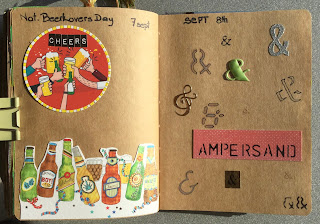 Nat. Beer Lovers Day
7 sept
CHEERS
SEPT 8th
&
&
&
&
&
&
AMPERSAND
&
&
&&